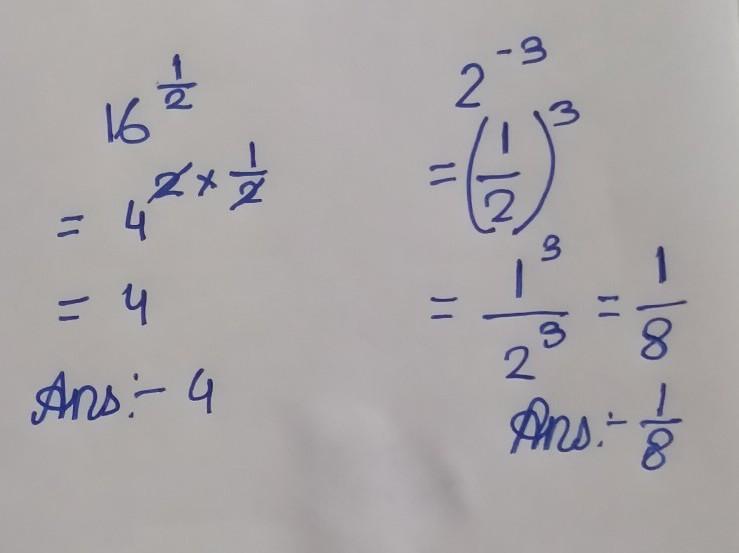 16^(1/2)
= 4^(2 × 1/2)
= 4
Ans:- 4
2^(-3)
= (1/2)^3
= 1^3/2^3 = 1/8
Ans:- 1/8